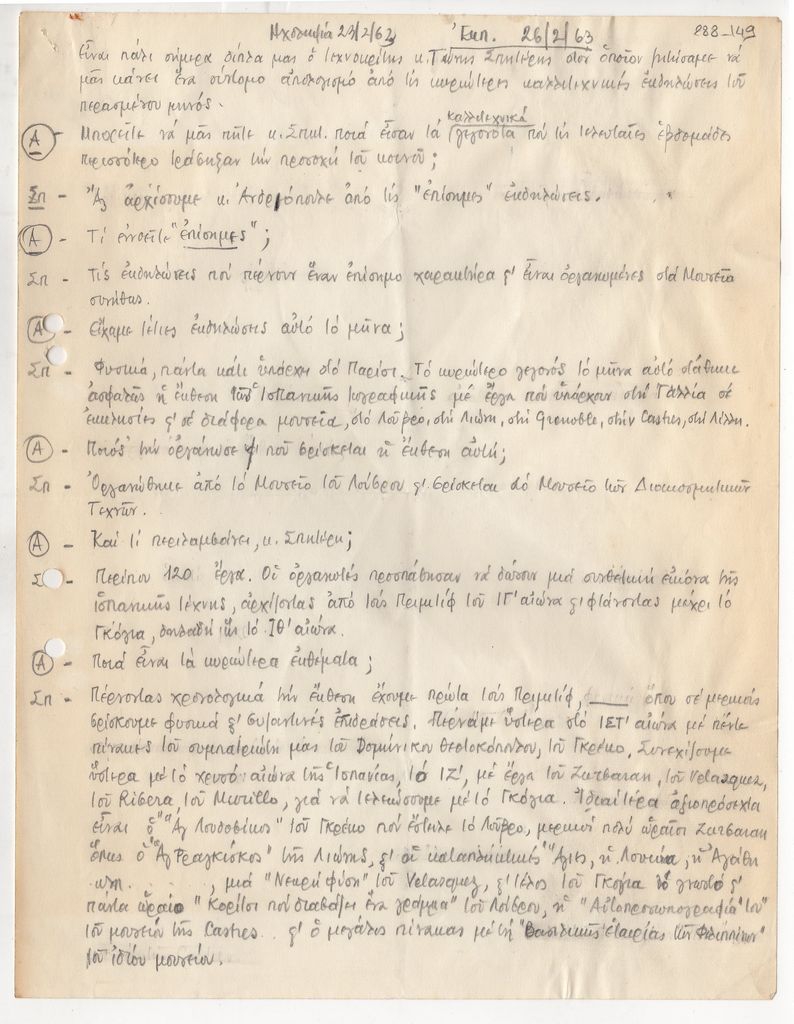 Ηχοληψία 23/2/63 Ἐκπ. 26/2/63 288-149
Εἶναι πάλι σήμερα δίπλα μας ὁ τεχνοκρίτης κ. Τώνης Σπητέρης στόν ὁποῖον μιλήσαμε νά
μᾶς κάνει ἕνα σύντομο ἀπολογισμό ἀπό τίς κυριώτερες καλλιτεχνικές ἐκδηλώσεις τοῦ
περασμένου μηνός.
Α - Μπορεῖτε νά μᾶς πῆτε κ. Σπητ. ποιά εἶσαν τά καλλιτεχνικά γεγονότα πού τίς τελευταῖες ἑβδομάδες
περισσότερο τράβηξαν τήν προσοχή τοῦ κοινοῦ;
Σπ - Ἄς ἀρχίσουμε κ. Ἀνδρ/όπουλε ἀπό τίς "ἐπίσημες" ἐκδηλώσεις.
Α - Τί ἐννοεῖτε "ἐπίσημες";
Σπ - Τίς ἐκδηλώσεις πού πέρνουν ἕναν ἐπίσημο χαρακτήρα ϗ' εἶναι ὀργανωμένες στά Μουσεῖα
συνήθως.
Α - Εἴχαμε τέτιες ἐκδηλώσεις αὐτό τό μῆνα;
Σπ - Φυσικά, πάντα κάτι ὑπάρχει στό Παρίσι. Τό κυριώτερο γεγονός τό μῆνα αὐτό στάθηκε
ἀσφαλῶς ἡ ἔκθεση τῆς Ἱσπανικῆς ζωγραφικῆς μέ ἔργα πού ὑπάρχουν στή Γαλλία σέ
ἐκκλησίες ϗ' σέ διάφορα μουσεῖα, στό Λοῦβρο, στή Λιών, στή Grenoble, στήν Castres, στή Λίλλη.
Α - Ποιός τήν ὀργάνωσε ϗ' πού βρίσκεται ἡ ἔκθεση αὐτή;
Σπ - Ὀργανώθηκε ἀπό τό Μουσεῖο τοῦ Λούβρου ϗ' βρίσκεται στό Μουσεῖο τῶν Διακοσμητικῶν
Τεχνῶν.
Α - Καί τί περιλαμβάνει, κ. Σπητέρη;
Σ - Περίπου 120 ἔργα. Οἱ ὀργανωτές προσπάθησαν νά δώσουν μιά συνθετική εἰκόνα τῆς
ἱσπανικῆς τέχνης, ἀρχίζοντας ἀπό τούς Πριμιτίφ τοῦ ΙΓ' αἰώνα ϗ' φτάνοντας μέχρι τό
Γκόγια, δηλαδή ὥς τό ΙΘ' αἰώνα.
Α - Ποιά εἶναι τά κυριώτερα ἐκθέματα;
Σπ - Πέρνοντας χρονολογικά τήν ἔκθεση ἔχουμε πρῶτα τούς Πριμιτίφ, ὅπου σέ μερικούς
βρίσκουμε φυσικά ϗ' βυζαντινές ἐπιδράσεις. Περνᾶμε ὕστερα στό ΙΣΤ' αἰώνα μέ πέντε
πίνακες τοῦ συμπατριώτη μας τοῦ Δομήνικου Θεοτοκόπουλου, τοῦ Γκρέκο. Συνεχίζουμε
ὕστερα μέ τό χρυσό αἰώνα τῆς Ἱσπανίας, τό ΙΖ', μέ ἔργα τοῦ Zurbaran, τοῦ Velasquez,
τοῦ Ribera, τοῦ Murillo, γιά νά τελειώσουμε μέ τό Γκόγια. Ἰδιαίτερα ἀξιοπρόσεχτα
εἶναι ὁ "Ἁγ Λουδοβίκος" τοῦ Γκρέκο πού ἔστειλε τό Λοῦβρο, μερικοί πολύ ὡραῖοι Zurbaran
ὅπως ὁ "Ἁγ Φραγκίσκος" τῆς Λιώνης, ϗ' οἱ καταπληκτικές "Ἁγιες, ἡ Λουκία, ἡ Ἀγάθη
κλπ. , μιά "Νεκρή φύση" τοῦ Velasquez, ϗ' τέλος τοῦ Γκόγια τό γνωστό ϗ'
πάντα ὡραῖο "Κορίτσι πού διαβάζει ἕνα γράμμα" τοῦ Λούβρου, ἡ "Αὐτοπροσωπογραφία του"
τοῦ μουσείου τῆς Castres ϗ' ὁ μεγάλος πίνακας μέ τή "Βασιλικῆς Ἑταιρίας τῶν Φιλιππίνων"
τοῦ ἰδίου μουσείου.